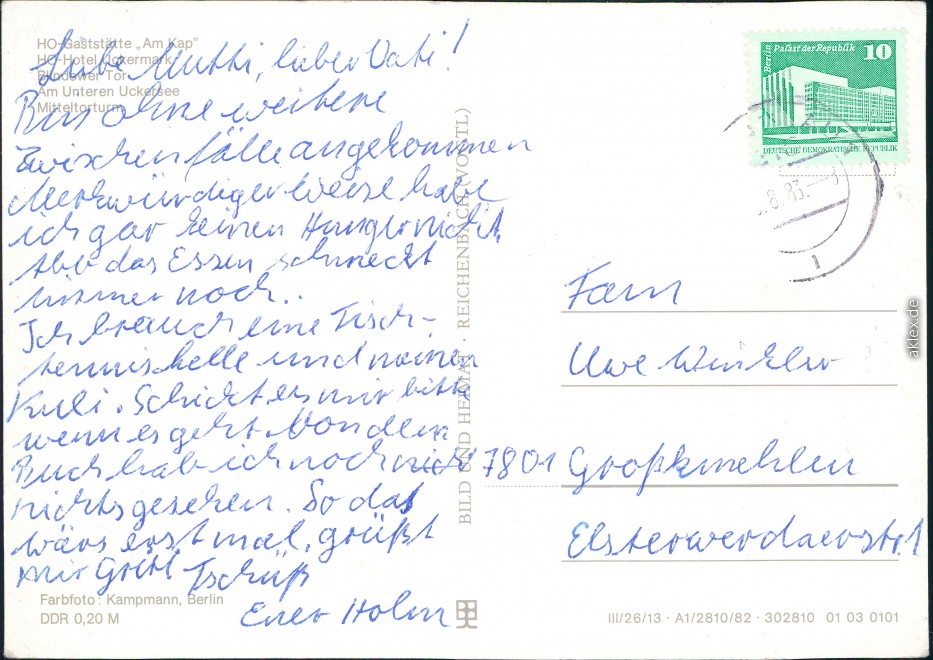 HO-Gaststätte „Am Kap"
HO-Hotel Uckermark
Blindower Tor
Am Unteren Uckersee
Mitteltorturm
Liebe Mutti, lieber Vati!
Bin ohne weitere
Zwischenfälle angekommen
Merkwürdiger Weise habe
ich gar keinen Hunger nicht.
Aber das Essen schmeckt
immer noch..
Ich brauch eine Tisch-
tenniskelle und meinen
Kuli. Schickt es mir bitte
wenn es geht. Von dem
Buch hab ich noch
nichts gesehen. So das
wärs erst mal, grüßt
mir Tschüß
Euer Holm
Farbfoto: Kampmann, Berlin
DDR 0,20 M
BILD UND HEIMAT · REICHENBACH (VOGTL)
Berlin Palast der Republik 10
DEUTSCHE DEMOKRATISCHE REPUBLIK
8.83.--8
1
Fam
Uwe Winkler
7801 Großkmehlen
Elsterwerdaerstr. 1
III/26/13 · A1/2810/82 · 302810 01 03 0101
aklex.de